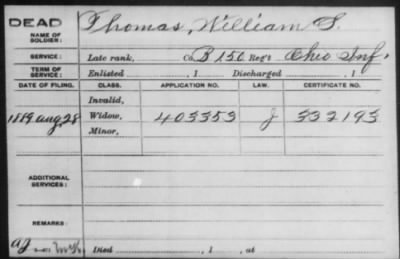 DEAD
NAME OF SOLDIER: Thomas, William S.
SERVICE: Late rank, Co. B 150 Reg't Ohio Inf.
TERM OF SERVICE: Enlisted , 1 Discharged , 1
DATE OF FILING. CLASS. APPLICATION NO. LAW. CERTIFICATE NO.
Invalid,
1889 Aug. 28 Widow, 403353 J 332193
Minor,
ADDITIONAL SERVICES:
REMARKS:
Died , 1 , at